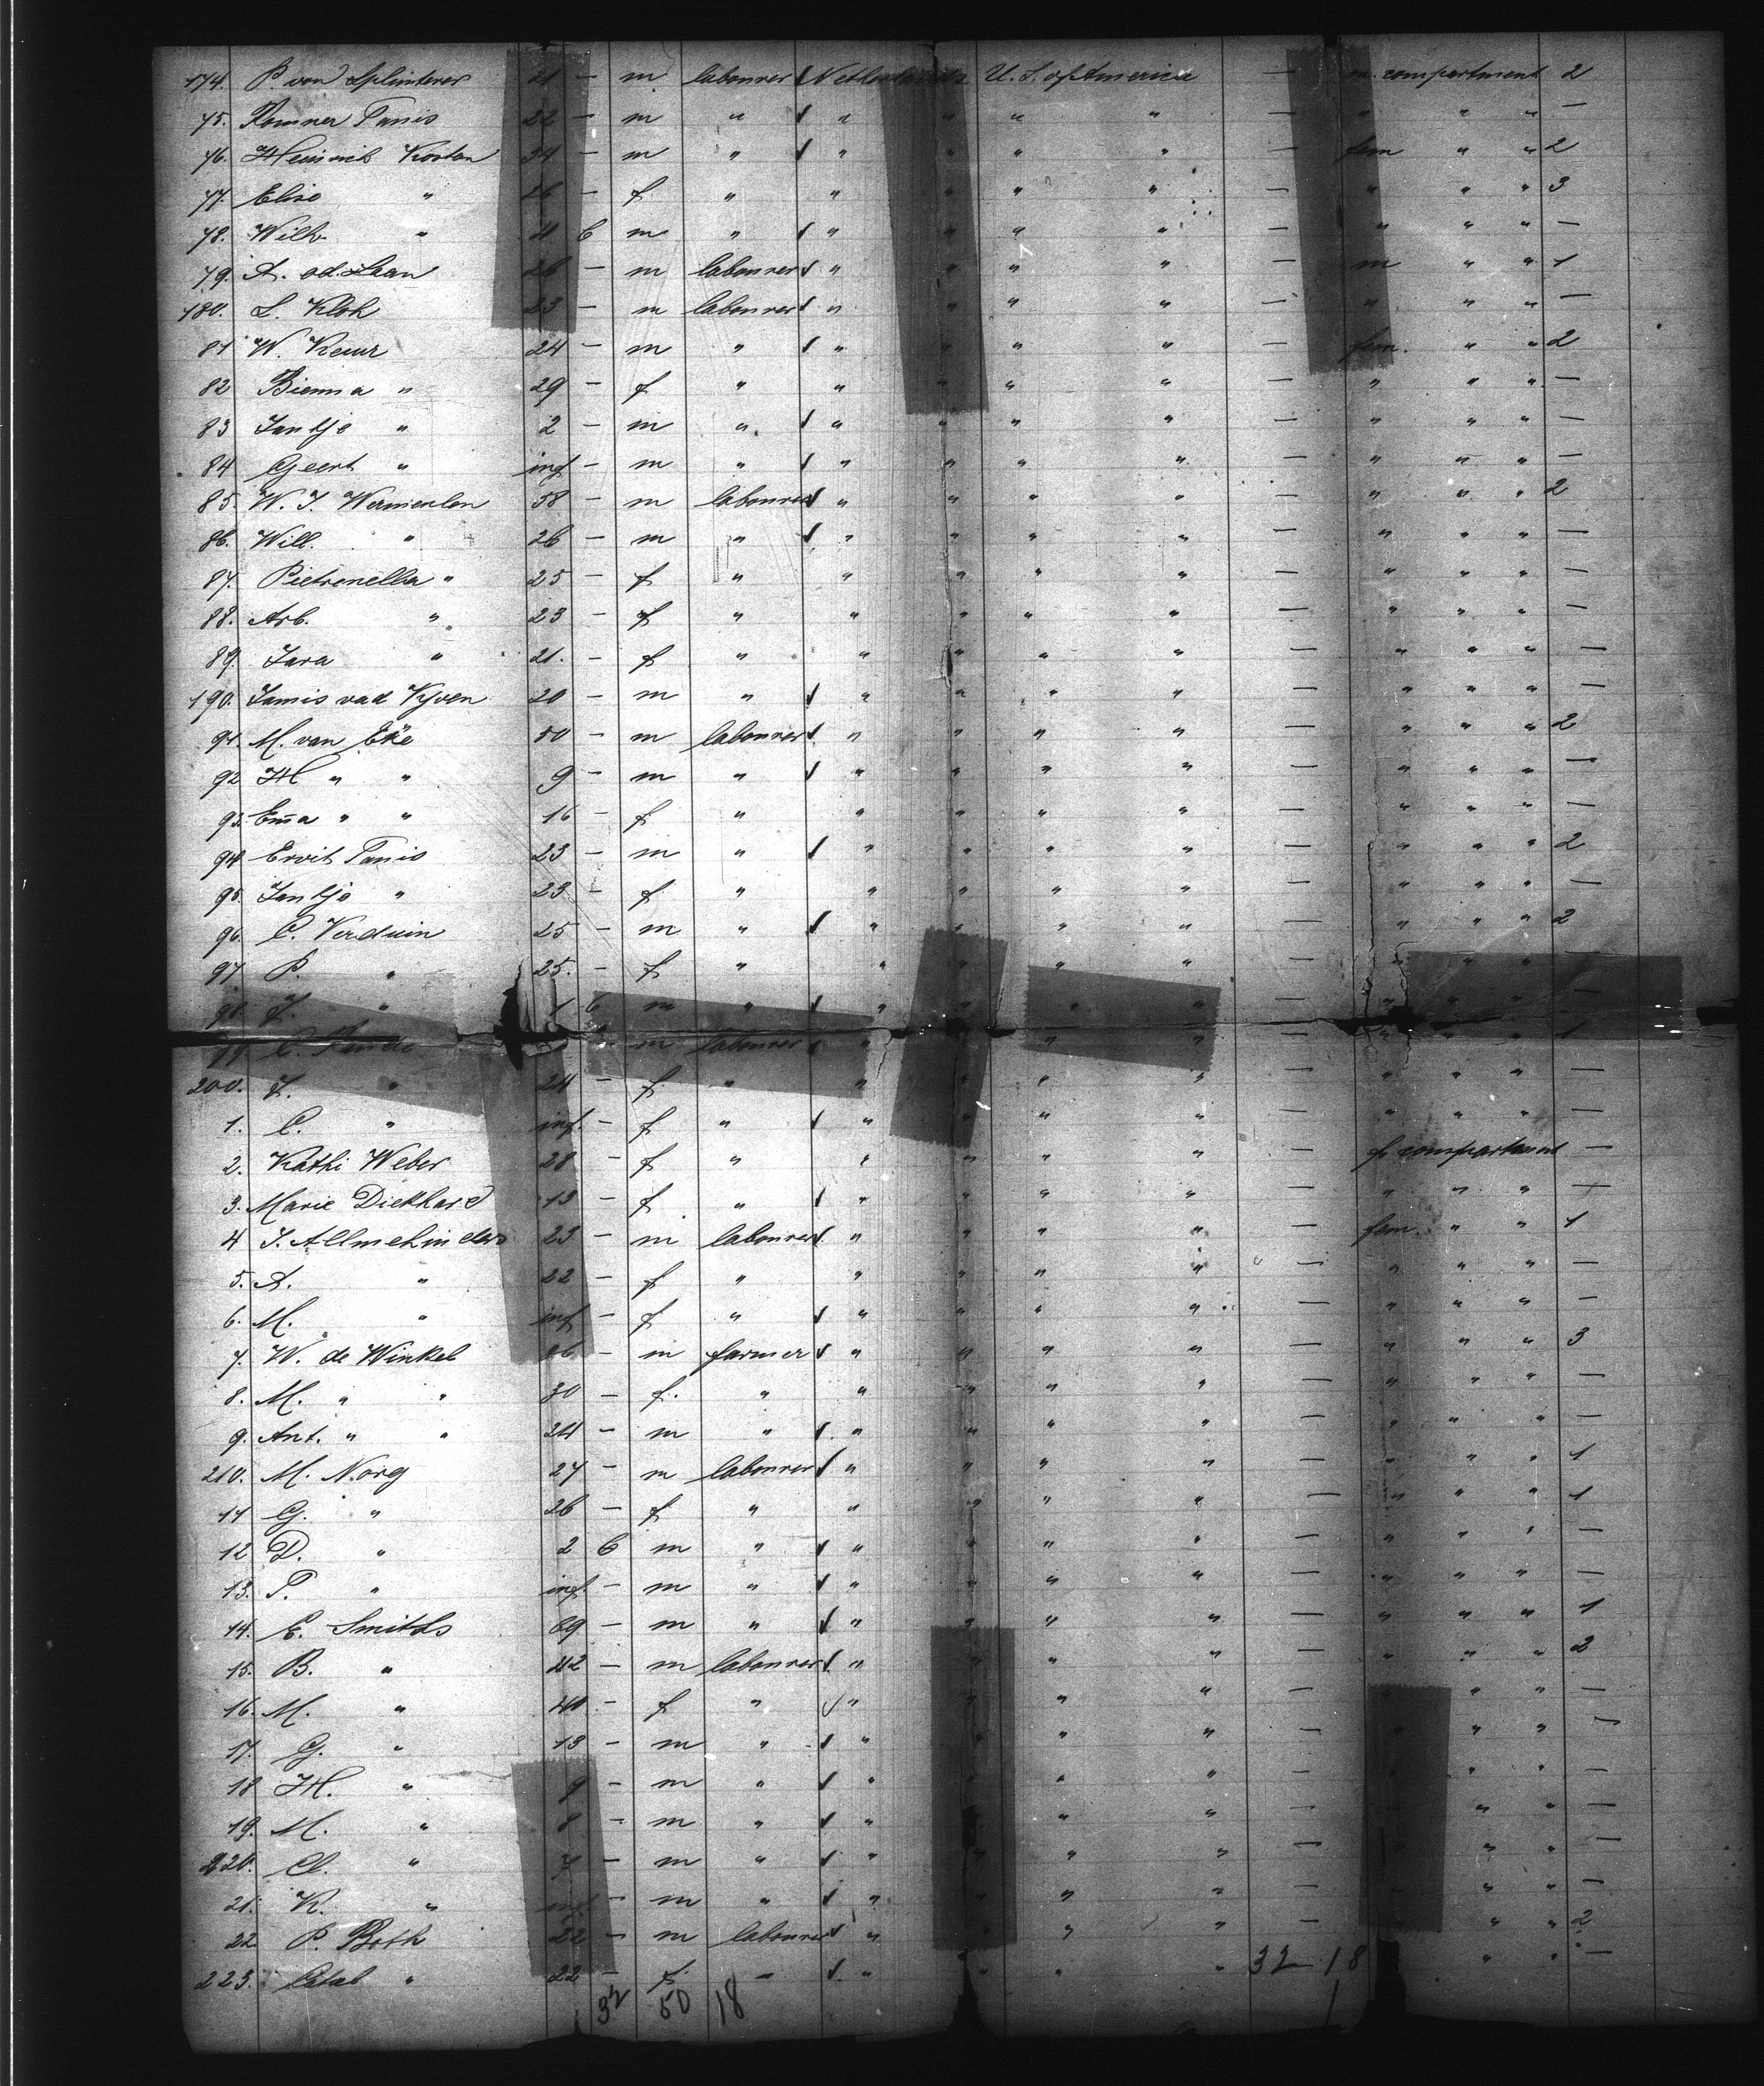 174. P. van Splinterer 21 — m labourer Netherlands U. S. of America — m. compartment 2
75. Pamner Tanis 22 — m " " " " " — " " " —
76. Heinrich Korton 34 — m " " " " " — fem " " 2
77. Elise " 26 — f " " " " " — " " " 3
78. Wilh. " 4 6 m " " " " " — " " " —
79. A. ad. Laan 26 — m labourer " " " " — m " " 1
180. L. Klok 23 — m labourer " " " " — " " " —
81 W. Keur 24 — m " " " " " — fem. " " 2
82 Bienna " 29 — f " " " " " — " " " —
83 Jantje " 2 — m " " " " " — " " " —
84 Geert " inf — m " " " " " — " " " —
85. W. J. Wermenlen 58 — m labourer " " " " — " " " 2
86. Will. " 26 — m " " " " " — " " " —
87. Pietronella " 25 — f " " " " " — " " " —
88. Arb. " 23 — f " " " " " — " " " —
89. Jara " 21. — f " " " " " — " " " —
190. Jamis vad Kyven 20 — m " " " " " — " " " —
91. M. van Eke 50 — m labourer " " " " — " " " 2
92 H " " 9 — m " " " " " — " " " —
93. Ema " " 16 — f " " " " " — " " " —
94 Ervit Tanis 23 — m " " " " " — " " " 2
95. Jantje " 23 — f " " " " " — " " " —
96. C. Verduin 25 — m " " " " " — " " " 2
97 P. " 25. — f " " " " " — " " " —
98. J. " 1 6 m " " " " " — " " " —
99 C. m labourer " " " " " 1
200. J. " 24 — f " " " " " — " " " —
1. C. " inf. — f " " " " " — " " " —
2. Kathi Weber 28 — f " " " " " — f. compartment —
3. Marie Diekhard 13 — f " " " " " — " " " —
4 J. Allmehinders 23 — m labourer " " " " — fem. " " 1
5. A. " 22 — f " " " " " — " " " —
6. M. " inf — f " " " " " — " " " —
7. W. de Winkel 36 — m farmer " " " " — " " " 3
8. M. " " 30 — f. " " " " " — " " " —
9. Ant. " " 24 — m " " " " " — " " " —
210. M. Norg 27 — m labourer " " " " — " " " 1
11 G. " 26 — f " " " " " — " " " 1
12 D. " 2 6 m " " " " " — " " " —
13. P. " inf. — m " " " " " — " " " —
14. E. Smitds 69 — m " " " " " — " " " 1
15. B. " 42 — m labourer " " " " — " " " 2
16. M. " 40. — f " " " " " — " " " —
17. G. " 13 — m " " " " " — " " " —
18 H. " 9 — m " " " " " — " " " —
19. M. " 8 — m " " " " " — " " " —
220. Cl. " 7 — m " " " " " — " " " —
21. K. " inf — m " " " " " — " " " —
22. P. Both 22 — m labourer " " " " — " " " 2
223. " 22 — f. — " " " " 32 — 18 " " —
32 50 18